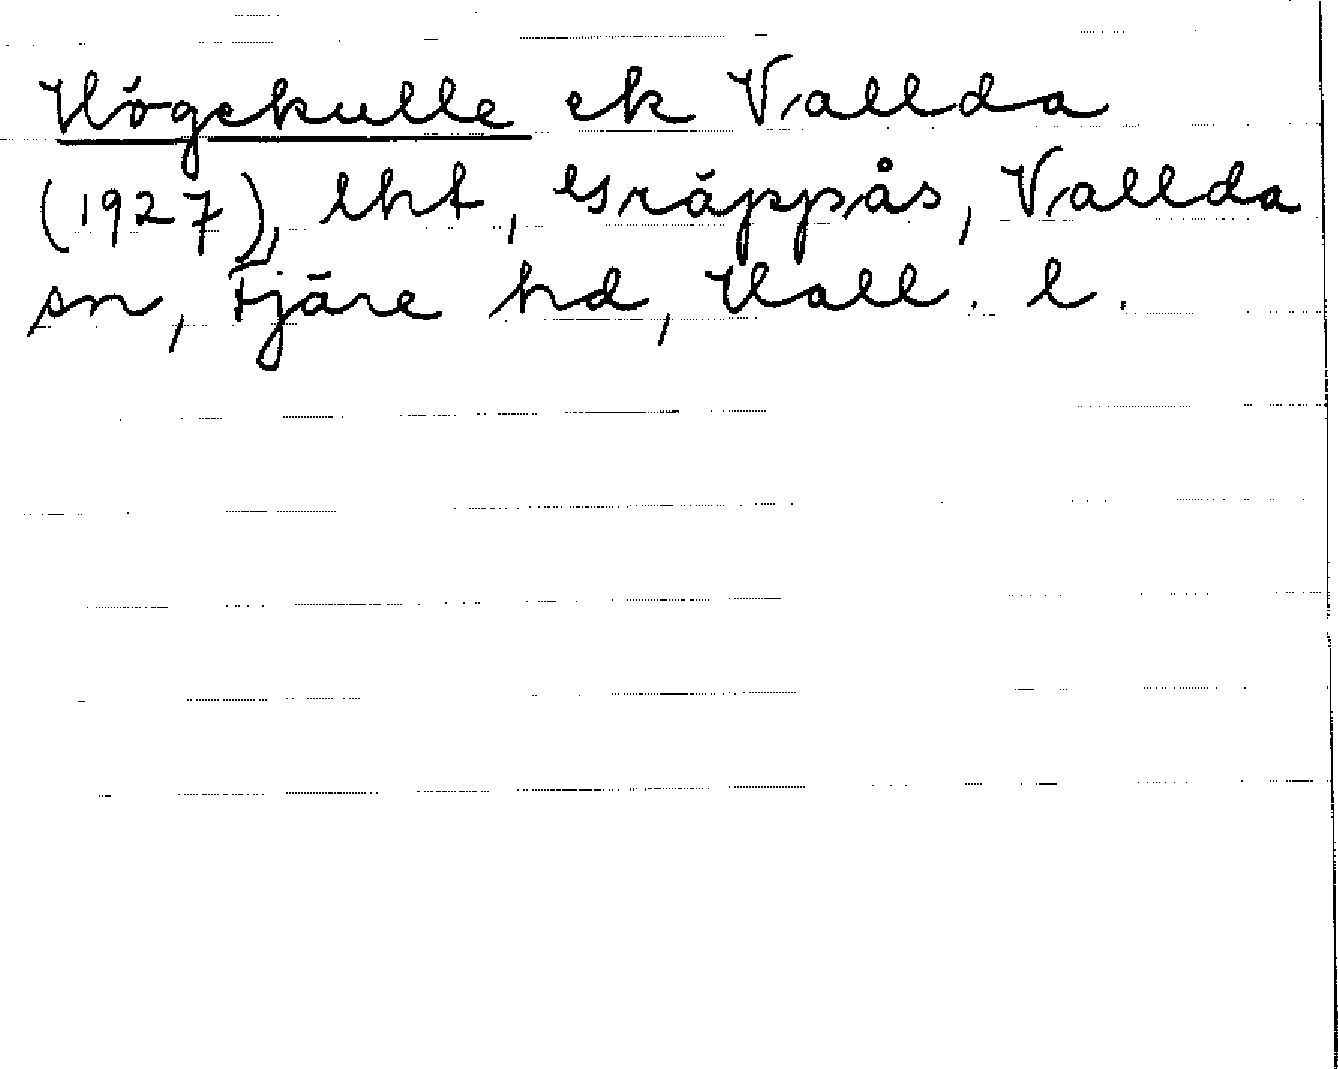 Högekulle ek Vallda
(1927), lht, Gräppås, Vallda
sn, Fjäre hd, Hall. l.